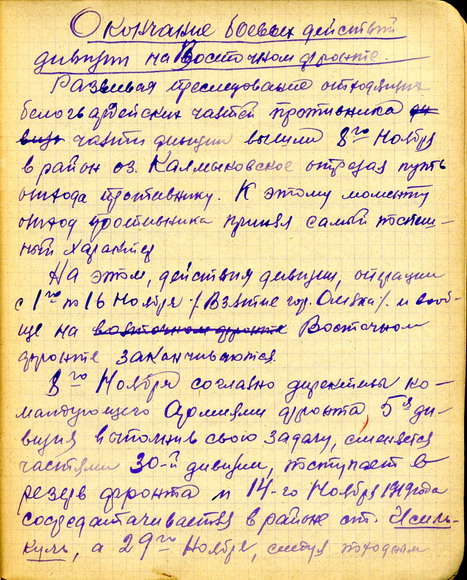 Окончание боевых действий
дивизии на Восточном фронте.
Развивая преследование отходящих
белогвардейских частей противника ди
визи части дивизии вышли 8го Ноября
в район оз. Калмыковское отрезая путь
отхода противнику. К этому моменту
отход противника принял самый поспеш-
ный характер
На этом, действия дивизии, операции
с 1го по 16 Ноября /Взятие гор. Омска/. и вооб-
ще на восточном фронте Восточном
фронте заканчиваются.
8го Ноября согласно директивы ко-
мандующего Армиями фронта, 5я ди-
визия выполнив свою задачу, сменяется
частями 30-й дивизии, поступает в
резерв фронта и 14-го Ноября 1919 года
сосредатачивается в районе ст. Исиль-
куль, а 29го Ноября, следуя походным